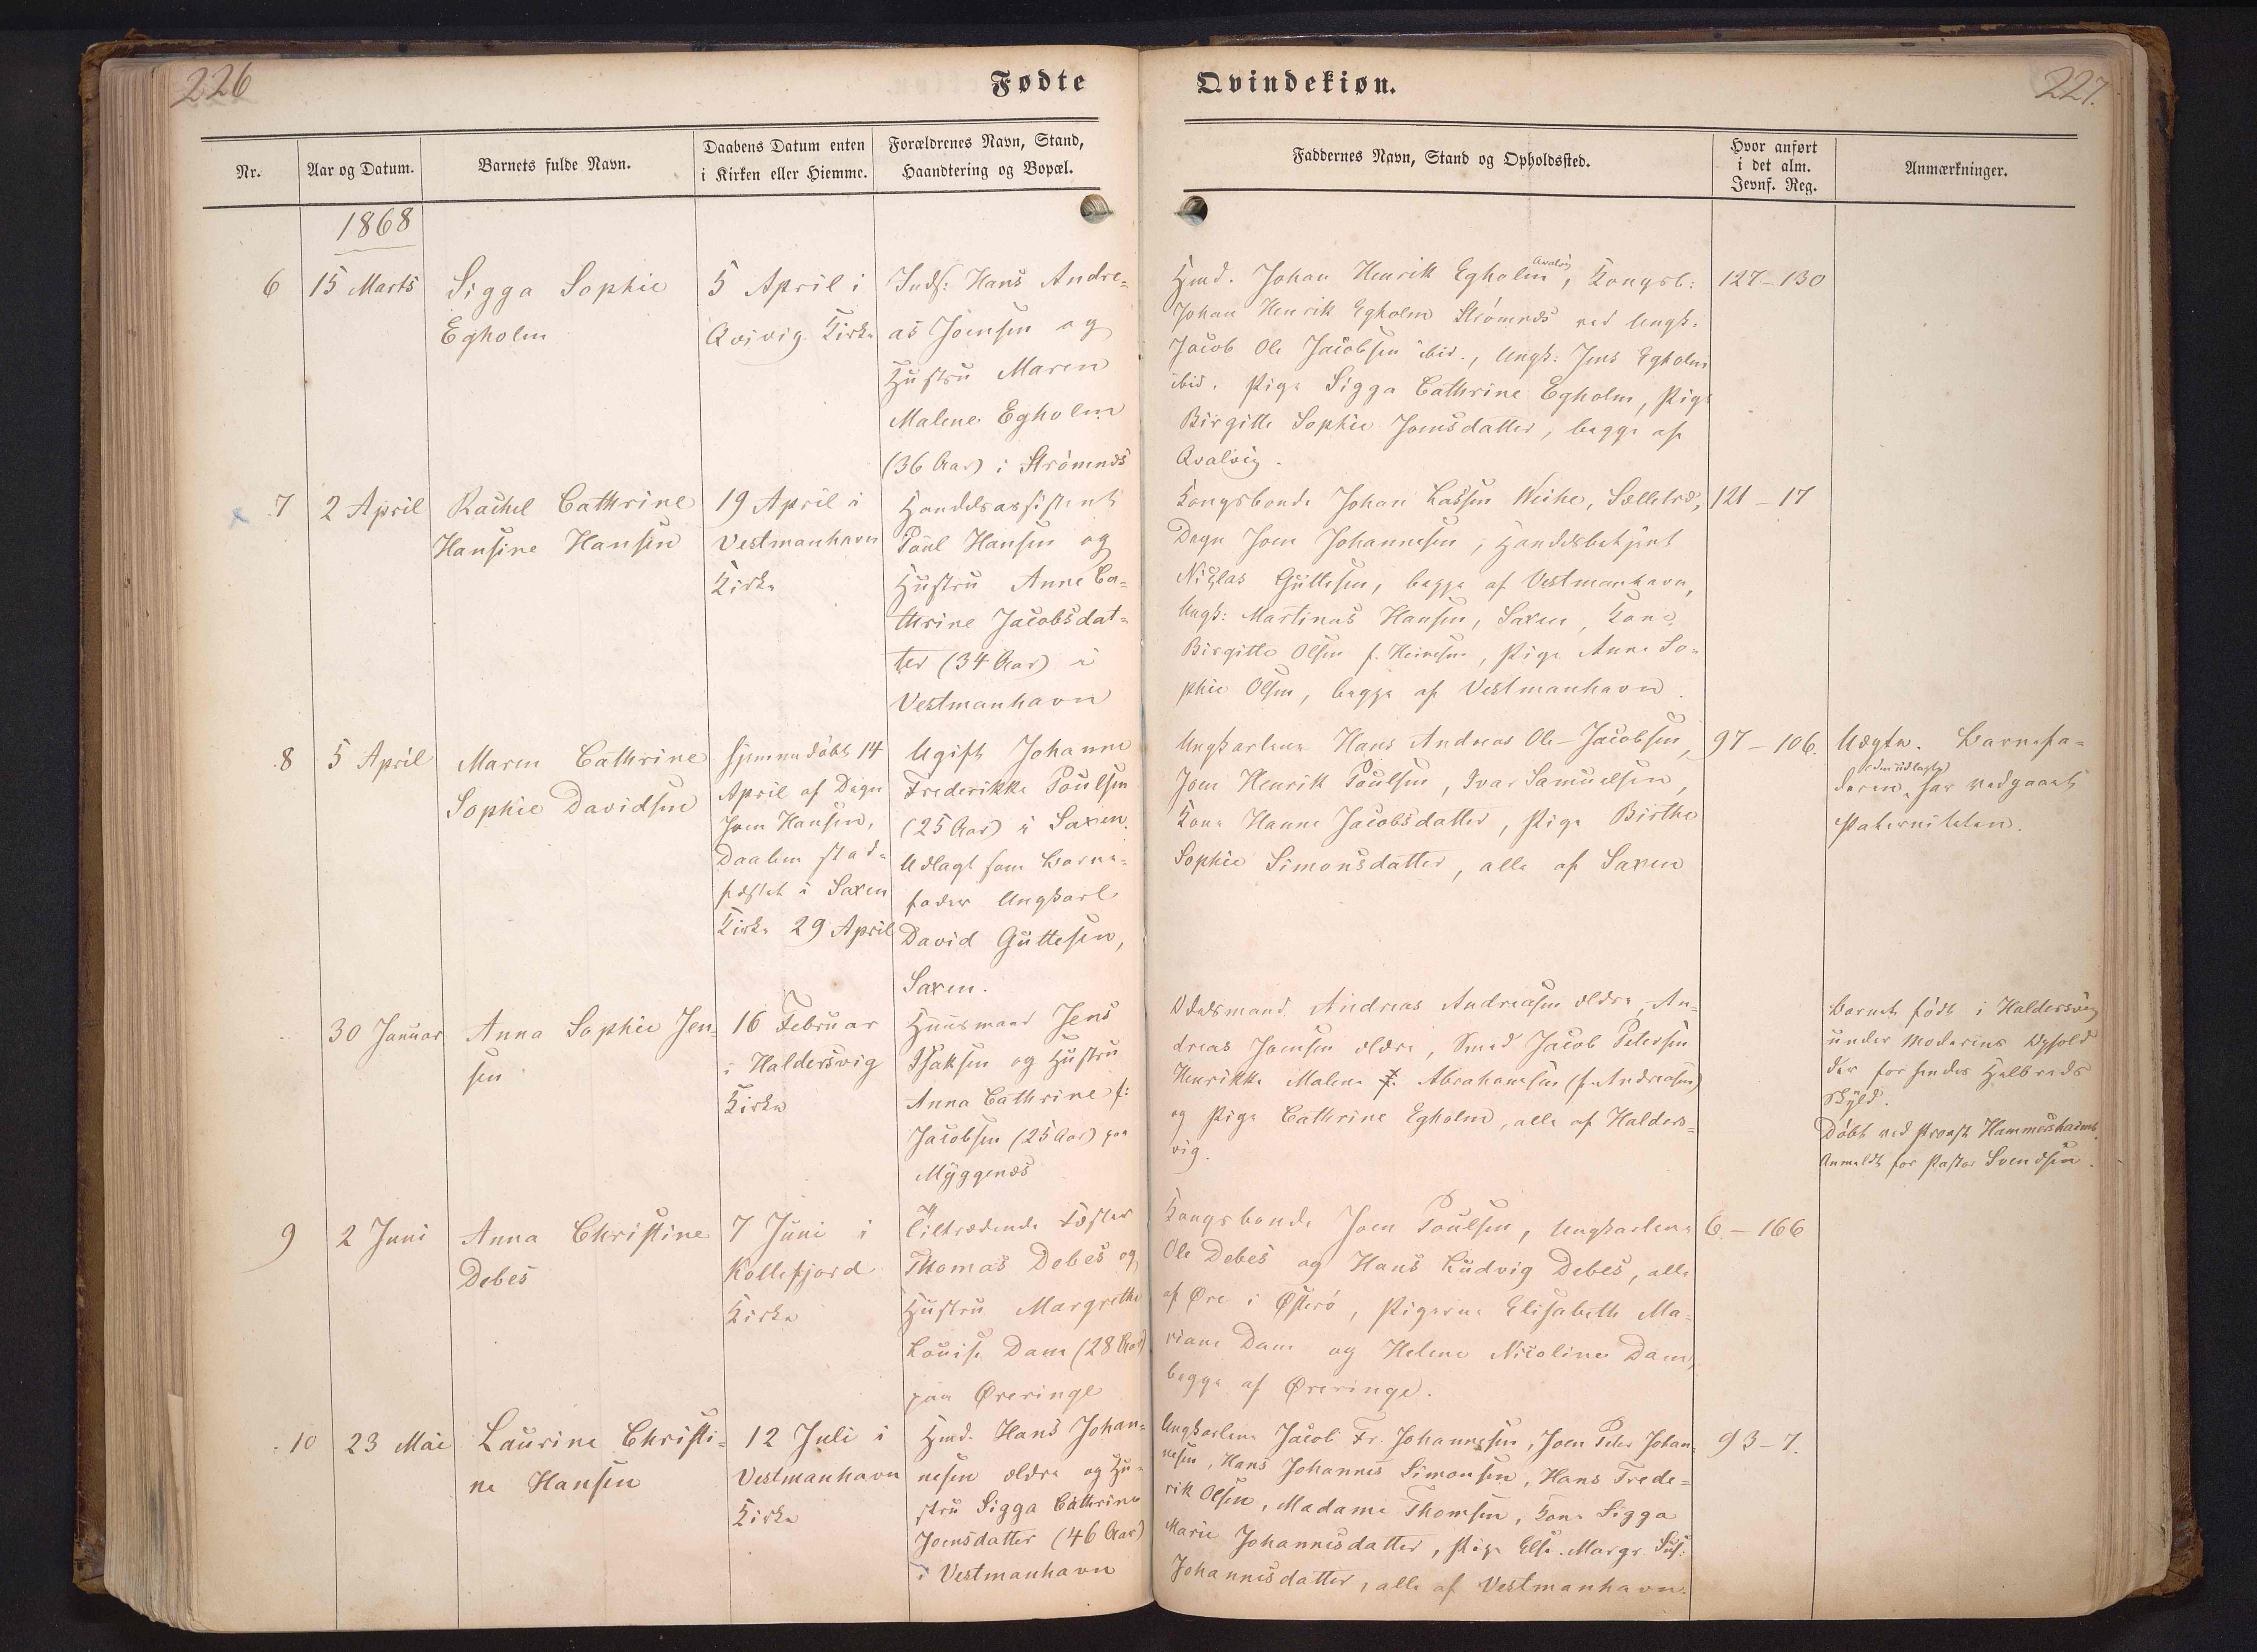 226
Fødte
Qvindekiøn.
227.
Nr.
Aar og Datum.
Barnets fulde Navn.
Daabens Datum enten
i Kirken eller Hiemme.
Forældrenes Navn, Stand,
Haandtering og Bopæl.
Faddernes Navn, Stand og Opholdssted.
Hvor anført
i det alm.
Jevnf. Reg.
Anmærkninger.
1868
6
15 Marts
Sigga Sophie
Egholm
5 April i
Qvivig Kirke
Inds: Hans Andre-
as Joensen og
Hustru Maren
Malene Egholm
(36 Aar) i Strömnæs
Hmd. Johan Henrik Egholm, Kongsb:
Qvalvig
Johan Henrik Egholm Strömnæs ved Ungk.
Jacob Ole Jacobsen ibid., Ungk: Jens Egholm
ibid. Pige Sigga Cathrine Egholm, Pige
Birgitte Sophie Joensdatter, begge af
Qvalvig.
127-130
7
2 April
Rachel Cathrine
Hansine Hansen
19 April i
Vestmanhavn
Kirke
Handelsassistent
Poul Hansen og
Hustru Anne Ca-
thrine Jacobsdat-
ter (34 Aar) i
Vestmanhavn
Kongsbonde Johan Lassen Weihe, Sælletræ,
Degn Joen Johannesen, Handelsbetjent
Niclas Guttesen, begge af Vestmanhavn,
Ungk: Martinus Hansen, Saxen, Kone
Birgitte Olsen f. Heinesen, Pige Anne So-
phie Olsen, begge af Vestmanhavn.
121-17
8
5 April
Maren Cathrine
Sophie Davidsen
hjemmedöbt 14
April af Degn
Joen Hansen,
Daaben stad-
fæstet i Saxen
Kirke 29 April
Ugift Johanne
Frederikke Poulsen
(25 Aar) i Saxen.
Udlagt som Barne-
fader Ungkarl
David Guttesen,
Saxen.
Ungkarlene Hans Andreas Ole-Jacobsen,
Joen Henrik Poulsen, Ivar Samuelsen,
Kone Hanne Jacobsdatter, Pige Birthe
Sophie Simonsdatter, alle af Saxen
97-106.
Uægte. Barnefa-
(den udlagte)
deren har vedgaaet
Paterniteten.
30 Januar
Anna Sophie Jen-
sen
16 Februar
i Haldersvig
Kirke
Huusmand Jens
Isaksen og Hustru
Anna Cathrine f:
Jacobsen (25 Aar) paa
Myggenæs
Odelsmand Andreas Andreasen ældre, An-
dreas Joensen ældre, Smed Jacob Petersen
Henrikke Malene f. Abrahamsen (f. Andreasen)
og Pige Cathrine Egholm, alle af Halders-
vig.
Barnet födt i Haldersvig
under Moderens Ophold
der for hendes Helbreds
Skyld.
Döbt ved Provst Hammershaimb.
Anmeldt for Pastor Svendsen.
9
2 Juni
Anna Christine
Debes
7 Juni i
Kollefjord
Kirke
Tiltrædende Fæster
Thomas Debes og
Hustru Margrethe
Louise Dam (28 Aar)
paa Øreringe
Kongsbonde Joen Poulsen, Ungkarlene
Ole Debes og Hans Ludvig Debes, alle
af Øre i Østerö, Pigerne Elisabeth Ma-
riane Dam og Helene Nicoline Dam,
begge af Øreringe.
6-166
10
23 Mai
Laurine Christi-
ne Hansen
12 Juli i
Vestmanhavn
Kirke
Hmd. Hans Johan-
nesen ældre og Hu-
stru Sigga Cathrine
Joensdatter (46 Aar)
i Vestmanhavn
Ungkarlene Jacob Fr. Johannesen, Joen Peter Johan-
nesen, Hans Johannes Simonsen, Hans Frede-
rik Olsen, Madame Thomsen, Kone Sigga
Marie Johannesdatter, Pige Else Margr. Sus:
Johannesdatter, alle af Vestmanhavn.
93-7.